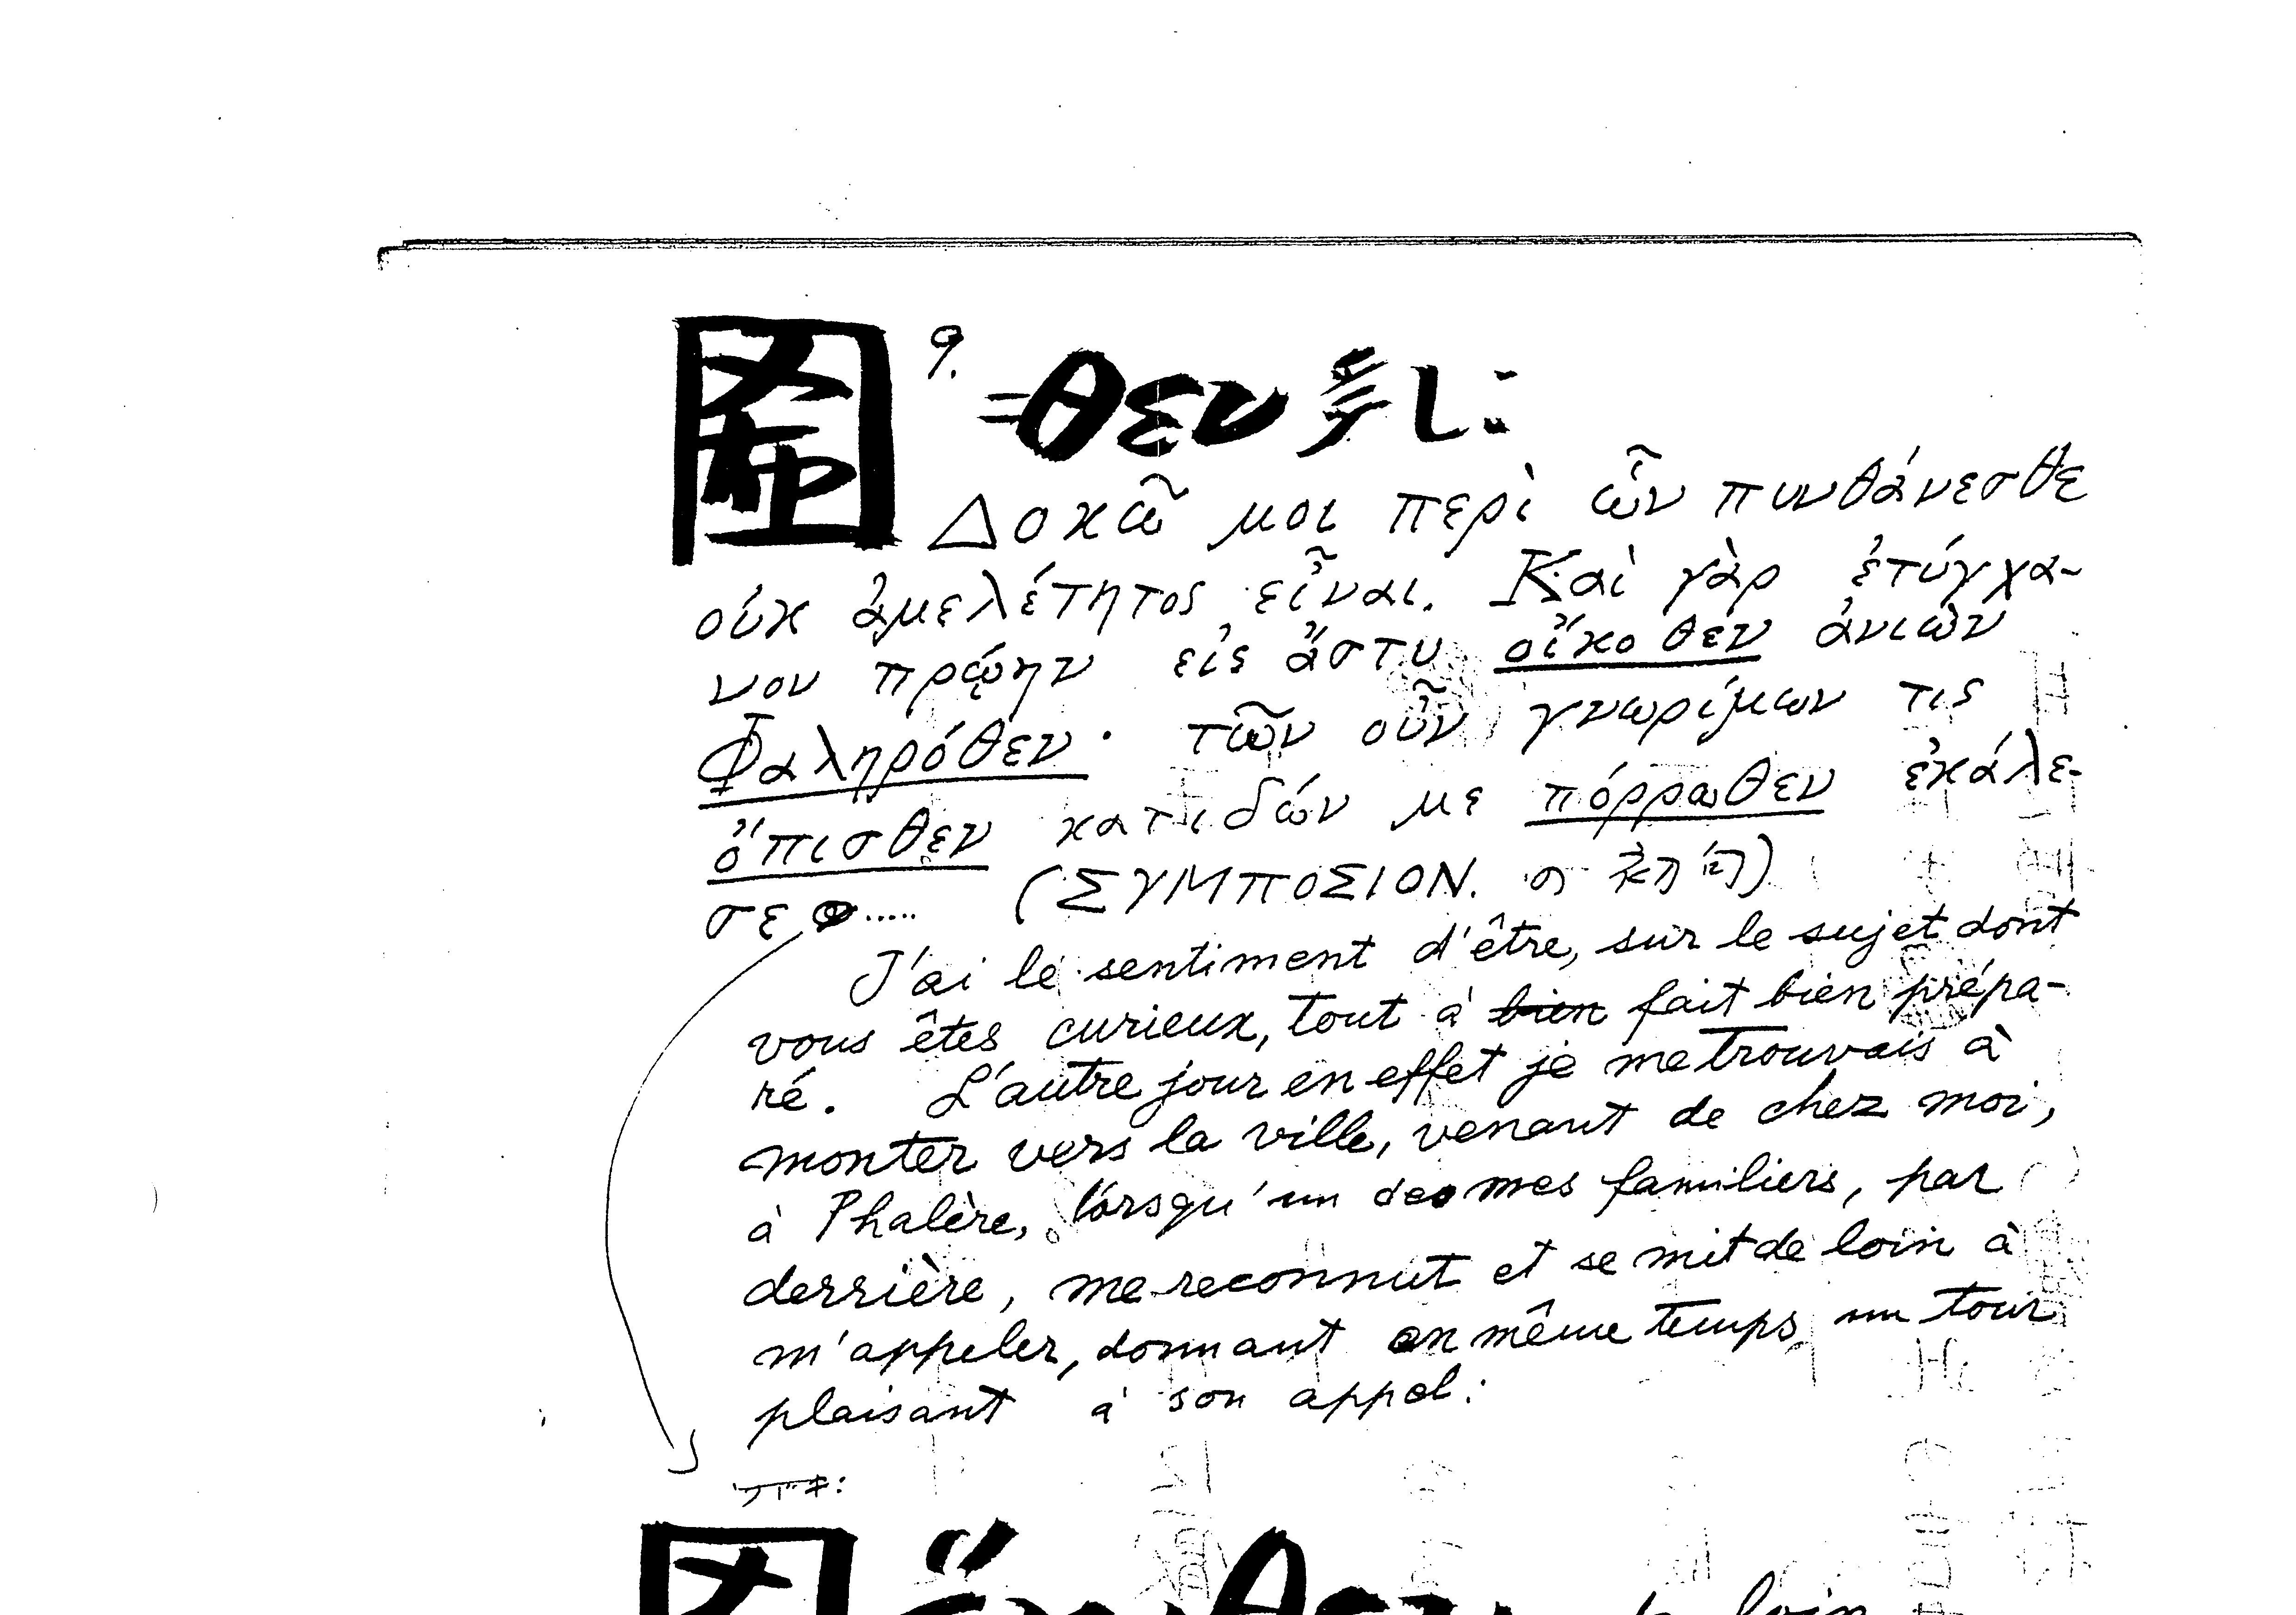 9. =θεν
Δοκῶ μοι περὶ ὧν πυνθάνεσθε
οὐκ ἀμελέτητος εἶναι. Καὶ γὰρ ἐτύγχα-
νον πρῴην εἰς ἄστυ οἴκοθεν ἀνιὼν
Φαληρόθεν · τῶν οὖν γνωρίμων τις
ὄπισθεν κατιδών με πόρρωθεν ἐκάλε-
σε ..... (ΣΥΜΠΟΣΙΟΝ.
J'ai le sentiment d'être, sur le sujet dont
vous êtes curieux, tout à bien fait bien prépa-
ré. L'autre jour en effet je me trouvais à
monter vers la ville, venant de chez moi,
à Phalère, lorsqu'un de mes familiers, par
derrière, me reconnut et se mit de loin à
m'appeler, donnant en même temps un tour
plaisant à son appel:
loin